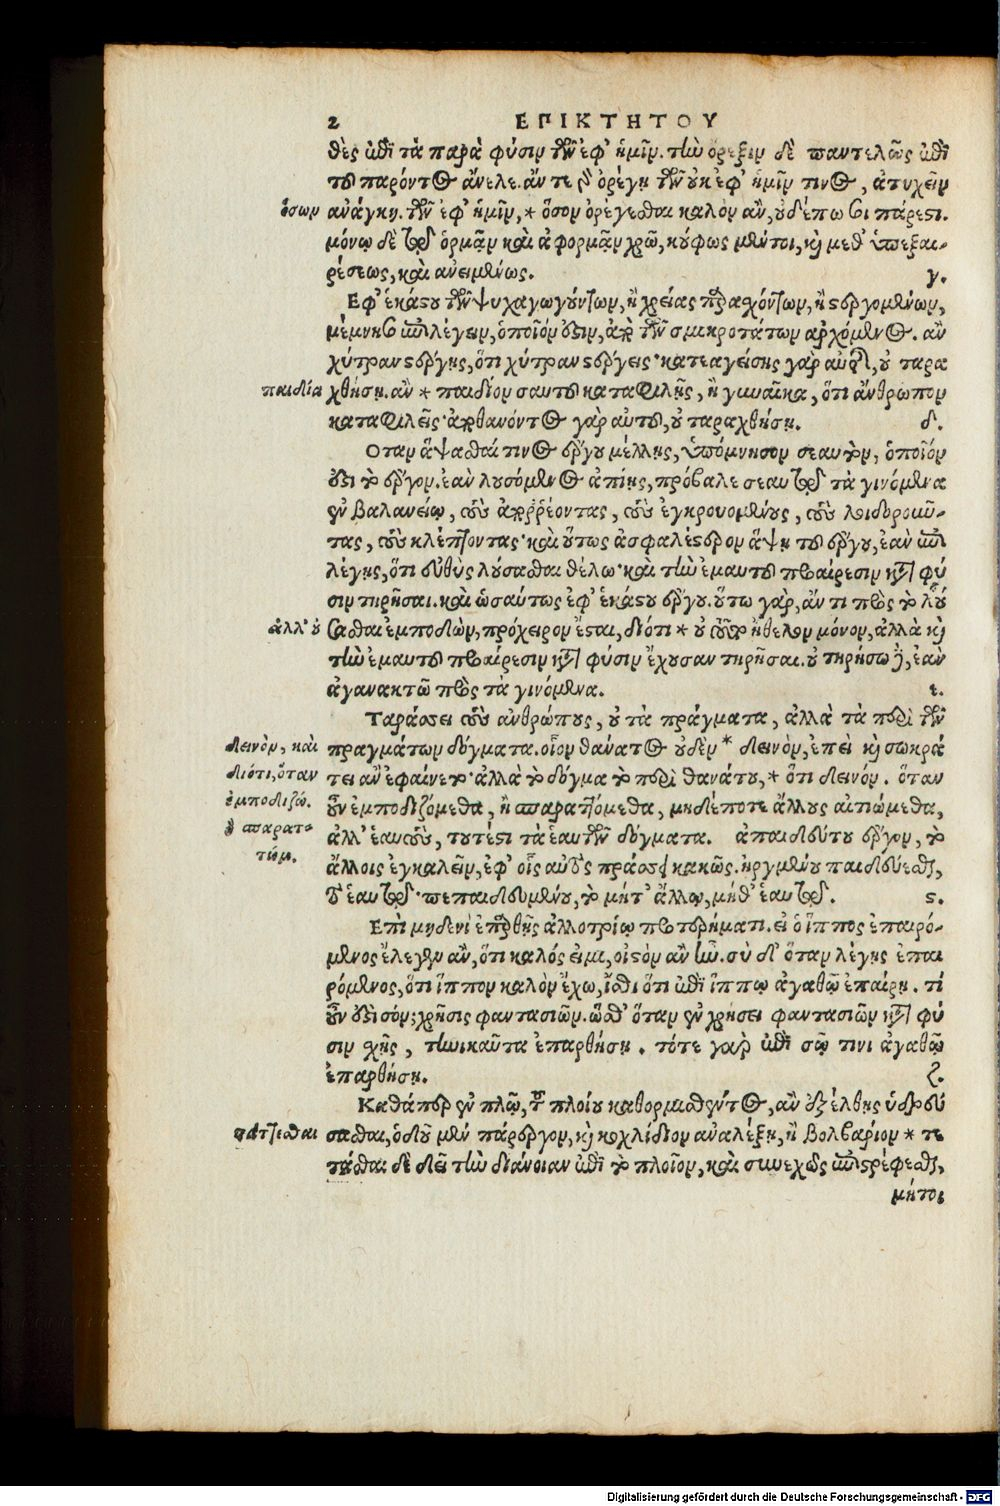 2 ΕΠΙΚΤΗΤΟΥ
θὲς ἐπὶ τὰ παρὰ φύσιν τῶν ἐφ' ἡμῖν. τὴν ὄρεξιν δὲ παντελῶς ἐπὶ
τοῦ παρόντος ἄνελε. ἄν τε γὰρ ὀρέγῃ τῶν οὐκ ἐφ' ἡμῖν τινος, ἀτυχεῖν
ὅσων ἀνάγκη. τῶν ἐφ' ἡμῖν, * ὅσον ὀρέγεσθαι καλὸν ἂν, οὐδέπω σοι πάρεστι.
μόνῳ δὲ τῷ ὁρμᾷν καὶ ἀφορμᾷν χρῶ, κούφως μέντοι, καὶ μεθ' ὑπεξαι-
ρέσεως, καὶ ἀνειμένως. γ.
Εφ' ἑκάστου τῶν ψυχαγωγούντων, ἢ χρείας παρεχόντων, ἢ στεργομένων,
μέμνησο ἐπιλέγειν, ὁποῖόν ἐστιν, ἀπὸ τῶν σμικροτάτων ἀρχόμενος. ἂν
χύτραν στέργῃς, ὅτι χύτραν στέργεις· κατεαγείσης γὰρ αὐτῆς, οὐ ταρα
παιδία χθήσῃ. ἂν * παιδίον σαυτοῦ καταφιλῇς, ἢ γυναῖκα, ὅτι ἄνθρωπον
καταφιλεῖς· ἀποθανόντος γὰρ αὐτοῦ, οὐ ταραχθήσῃ. δ.
Οταν ἅψασθαί τινος ἔργου μέλλῃς, ὑπόμνησον σεαυτὸν, ὁποῖόν
ἐστι τὸ ἔργον. ἐὰν λουσόμενος ἀπίῃς, πρόβαλε σεαυτῷ τὰ γινόμενα
ἐν βαλανείῳ, τοὺς ἀπορρέοντας, τοὺς ἐγκρουομένους, τοὺς λοιδοροῦν-
τας, τοὺς κλέπτοντας· καὶ οὕτως ἀσφαλέστερον ἅψῃ τοῦ ἔργου, ἐὰν ἐπι
λέγῃς, ὅτι εὐθὺς λούσασθαι θέλω· καὶ τὴν ἐμαυτοῦ προαίρεσιν κατὰ φύ
σιν τηρῆσαι. καὶ ὡσαύτως ἐφ' ἑκάστου ἔργου. οὕτω γὰρ, ἄν τι πρὸς τὸ λού
ἀλλ' οὐ σασθαι ἐμποδὼν, πρόχειρον ἔσται, διότι * οὐ τοῦτο ἤθελον μόνον, ἀλλὰ καὶ
τὴν ἐμαυτοῦ προαίρεσιν κατὰ φύσιν ἔχουσαν τηρῆσαι. οὐ τηρήσω δὲ, ἐὰν
ἀγανακτῶ πρὸς τὰ γινόμενα. ε.
Ταράσσει τοὺς ἀνθρώπους, οὐ τὰ πράγματα, ἀλλὰ τὰ περὶ τῶν
δεινὸν, καὶ πραγμάτων δόγματα. οἷον θάνατος οὐδὲν * δεινὸν, ἐπεὶ καὶ σωκρά
διότι, ὅταν τει ἂν ἐφαίνετο· ἀλλὰ τὸ δόγμα τὸ περὶ θανάτου, * ὅτι δεινόν. ὅταν
ἐμποδιζώ. οὖν ἐμποδιζόμεθα, ἢ παραττόμεθα, μηδέποτε ἄλλους αἰτιώμεθα,
ἢ παρατ- ἀλλ' ἑαυτοὺς, τουτέστι τὰ ἑαυτῶν δόγματα. ἀπαιδεύτου ἔργον, τὸ
τώμ. ἄλλοις ἐγκαλεῖν, ἐφ' οἷς αὐτὸς πράσσει κακῶς. ἠργμένου παιδεύεσθαι,
τὸ ἑαυτῷ· πεπαιδευμένου, τὸ μήτ' ἄλλῳ, μήθ' ἑαυτῷ. ϛ.
Επὶ μηδενὶ ἐπαρθῇς ἀλλοτρίῳ προτερήματι. εἰ ὁ ἵππος ἐπαιρό-
μενος ἔλεγεν ἂν, ὅτι καλός εἰμι, οἰστὸν ἂν ἦν. σὺ δ' ὅταν λέγῃς ἐπαι
ρόμενος, ὅτι ἵππον καλὸν ἔχω, ἴσθι ὅτι ἐπὶ ἵππῳ ἀγαθῷ ἐπαίρῃ. τί
οὖν ἐστι σόν; χρῆσις φαντασιῶν. ὥσθ' ὅταν ἐν χρήσει φαντασιῶν κατὰ φύ
σιν σχῇς, τηνικαῦτα ἐπαρθήσῃ. τότε γὰρ ἐπὶ σῷ τινι ἀγαθῷ
ἐπαρθήσῃ. ζ.
Καθάπερ ἐν πλῷ, τοῦ πλοίου καθορμισθέντος, ἂν ἐξέλθῃς ὑδρεύ
τάττεσθαι σασθαι, ὁδοῦ μὲν πάρεργον, καὶ κοχλίδιον ἀναλέξῃ, ἢ βολβάριον * τε
τάσθαι δὲ δεῖ τὴν διάνοιαν ἐπὶ τὸ πλοῖον, καὶ συνεχῶς ἐπιστρέφεσθαι,
μήτοι
Digitalisierung gefördert durch die Deutsche Forschungsgemeinschaft - DFG